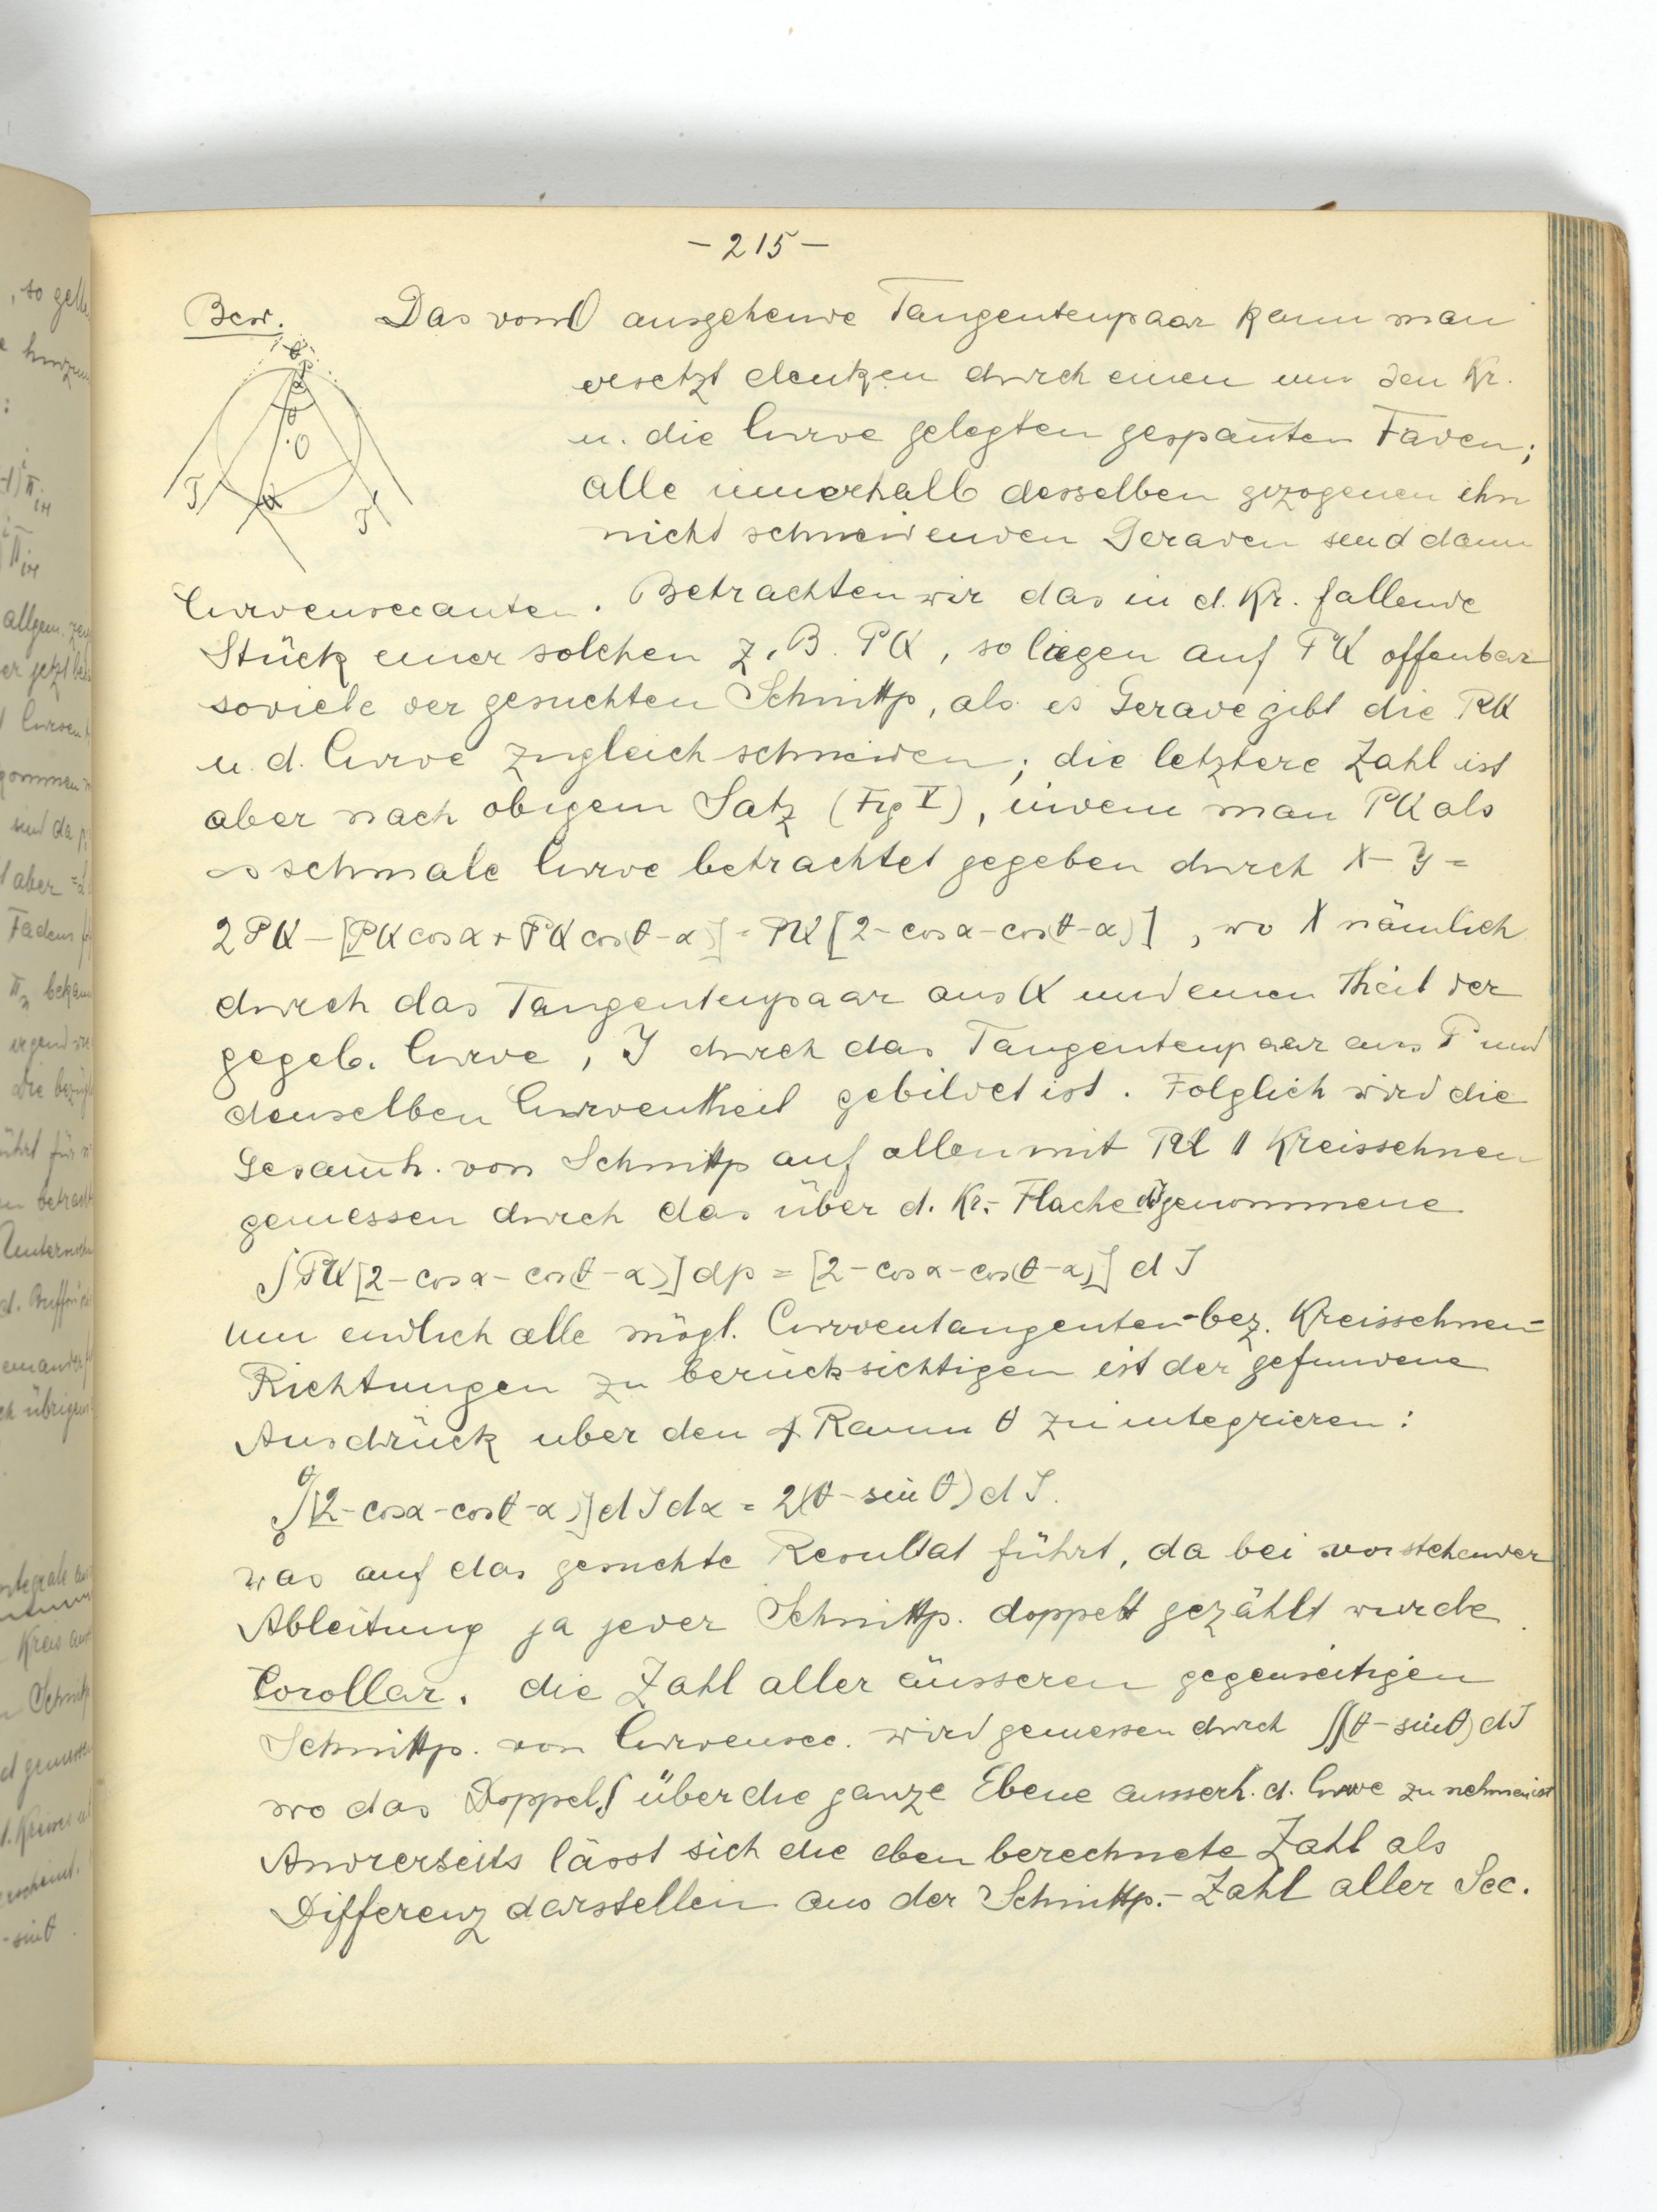 - 215 -
Bew. Das von O ausgehende Tangentenpaar kann man
ersetzt denken durch einen um den Kr.
u. die Curve gelegten gespannten Faden;
alle innerhalb desselben gezogenen ihn
nicht schneidenden Geraden sind dann
Curvensecanten. Betrachten wir das in d. Kr. fallende
Stück einer solchen z. B. PK, so liegen auf PK offenbar
soviele der gesuchten Schnittp, als es Gerade gibt die PK
u. d. Curve zugleich schneiden; die letztere Zahl ist
aber nach obigem Satz (Fig V), indem man PK als
∞ schmale Curve betrachtet gegeben durch X - Y =
2PK - [PK cos α + PK cos(θ - α)] = PK [2 - cos α - cos(θ - α)], wo X nämlich
durch das Tangentenpaar aus K und einen Theil der
gegeb. Curve, Y durch das Tangentenpaar aus P und
denselben Curventheil gebildet ist. Folglich wird die
Gesammth. von Schnittp auf allen mit PK || Kreissehnen
gemessen durch das über d. Kr.- Fläche dJ genommene
∫PK[2 - cos α - cos(θ - α)] dp = [2 - cos α - cos(θ - α)] dJ
Um endlich alle mögl. Curventangenten- bez. Kreissehnen=
Richtungen zu berücksichtigen ist der gefundene
Ausdrück uber den ∢ Raum θ zu integrieren:
θ
∫[2 - cos α - cos(θ - α)] dJ dα = 2(θ - sin θ) dJ.
0
was auf das gesuchte Resultat führt, da bei vorstehender
Ableitung ja jeder Schnittp. doppelt gezählt wurde.
Corollar. die Zahl aller äusseren gegenseitigen
Schnittp. von Curvensec. wird gemessen durch ∫∫(θ - sin θ) dJ
wo das Doppel∫ über die ganze Ebene ausserh. d. Curve zu nehmen ist
Andrerseits lässt sich die eben berechnete Zahl als
Differenz darstellen aus der Schnittp.- Zahl aller Sec.